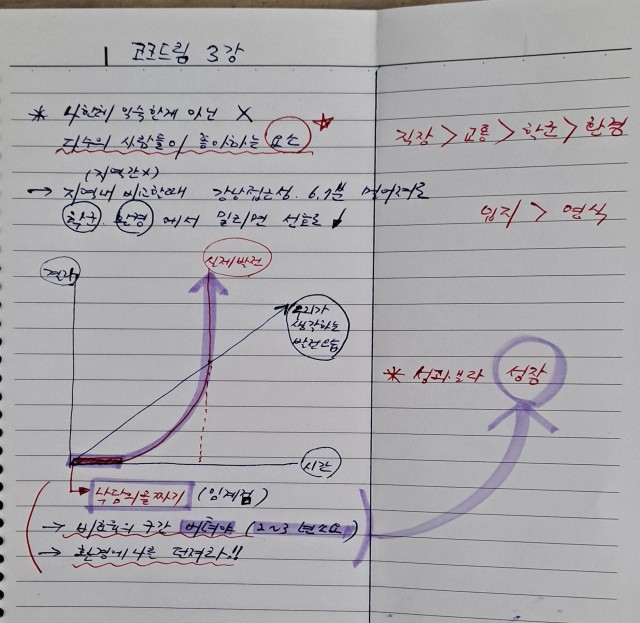 코크드림 3강
* 나한테 익숙한게 아닌 X
다수의 사람들이 좋아하는 요소
(지역간x)
→ 지역내 비교할때 강남접근성. 6, 7분 멀어져도
학군 환경 에서 밀리면 선호도 ↓
결과
실제발전
우리가
생각하는
발전모습
시간
낙담의골짜기 (임계점)
→ 비효율의 구간 버텨야 (2~3년소요)
→ 환경에 나를 던져라!!
직장 > 교통 > 학군 > 환경
입지 > 연식
* 성과보다 성장